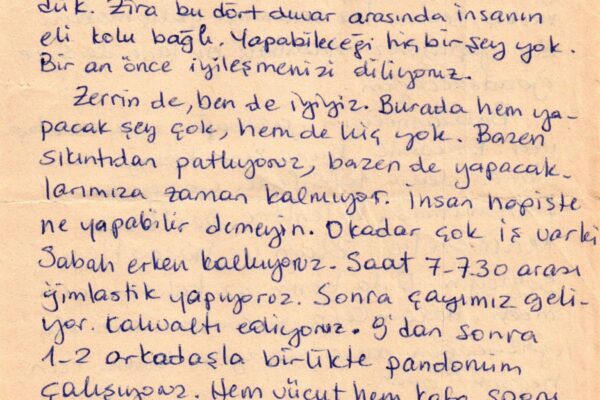 dük. Zira bu dört duvar arasında insanın
eli kolu bağlı. Yapabileceği hiç bir şey yok.
Bir an önce iyileşmenizi diliyoruz.
Zerrin de, ben de iyiyiz. Burada hem ya-
pacak şey çok, hem de hiç yok. Bazen
sıkıntıdan patlıyoruz, bazen de yapacak-
larımıza zaman kalmıyor. İnsan hapiste
ne yapabilir demeyin. Okadar çok iş varki
Sabah erken kalkıyoruz. Saat 7-7.30 arası
ğimlastik yapıyoruz. Sonra çayımız geli-
yor. Kahvaltı ediyoruz. 9'dan sonra
1-2 arkadaşla birlikte pandomim
çalışıyoruz. Hem vücut hem kafa sporu